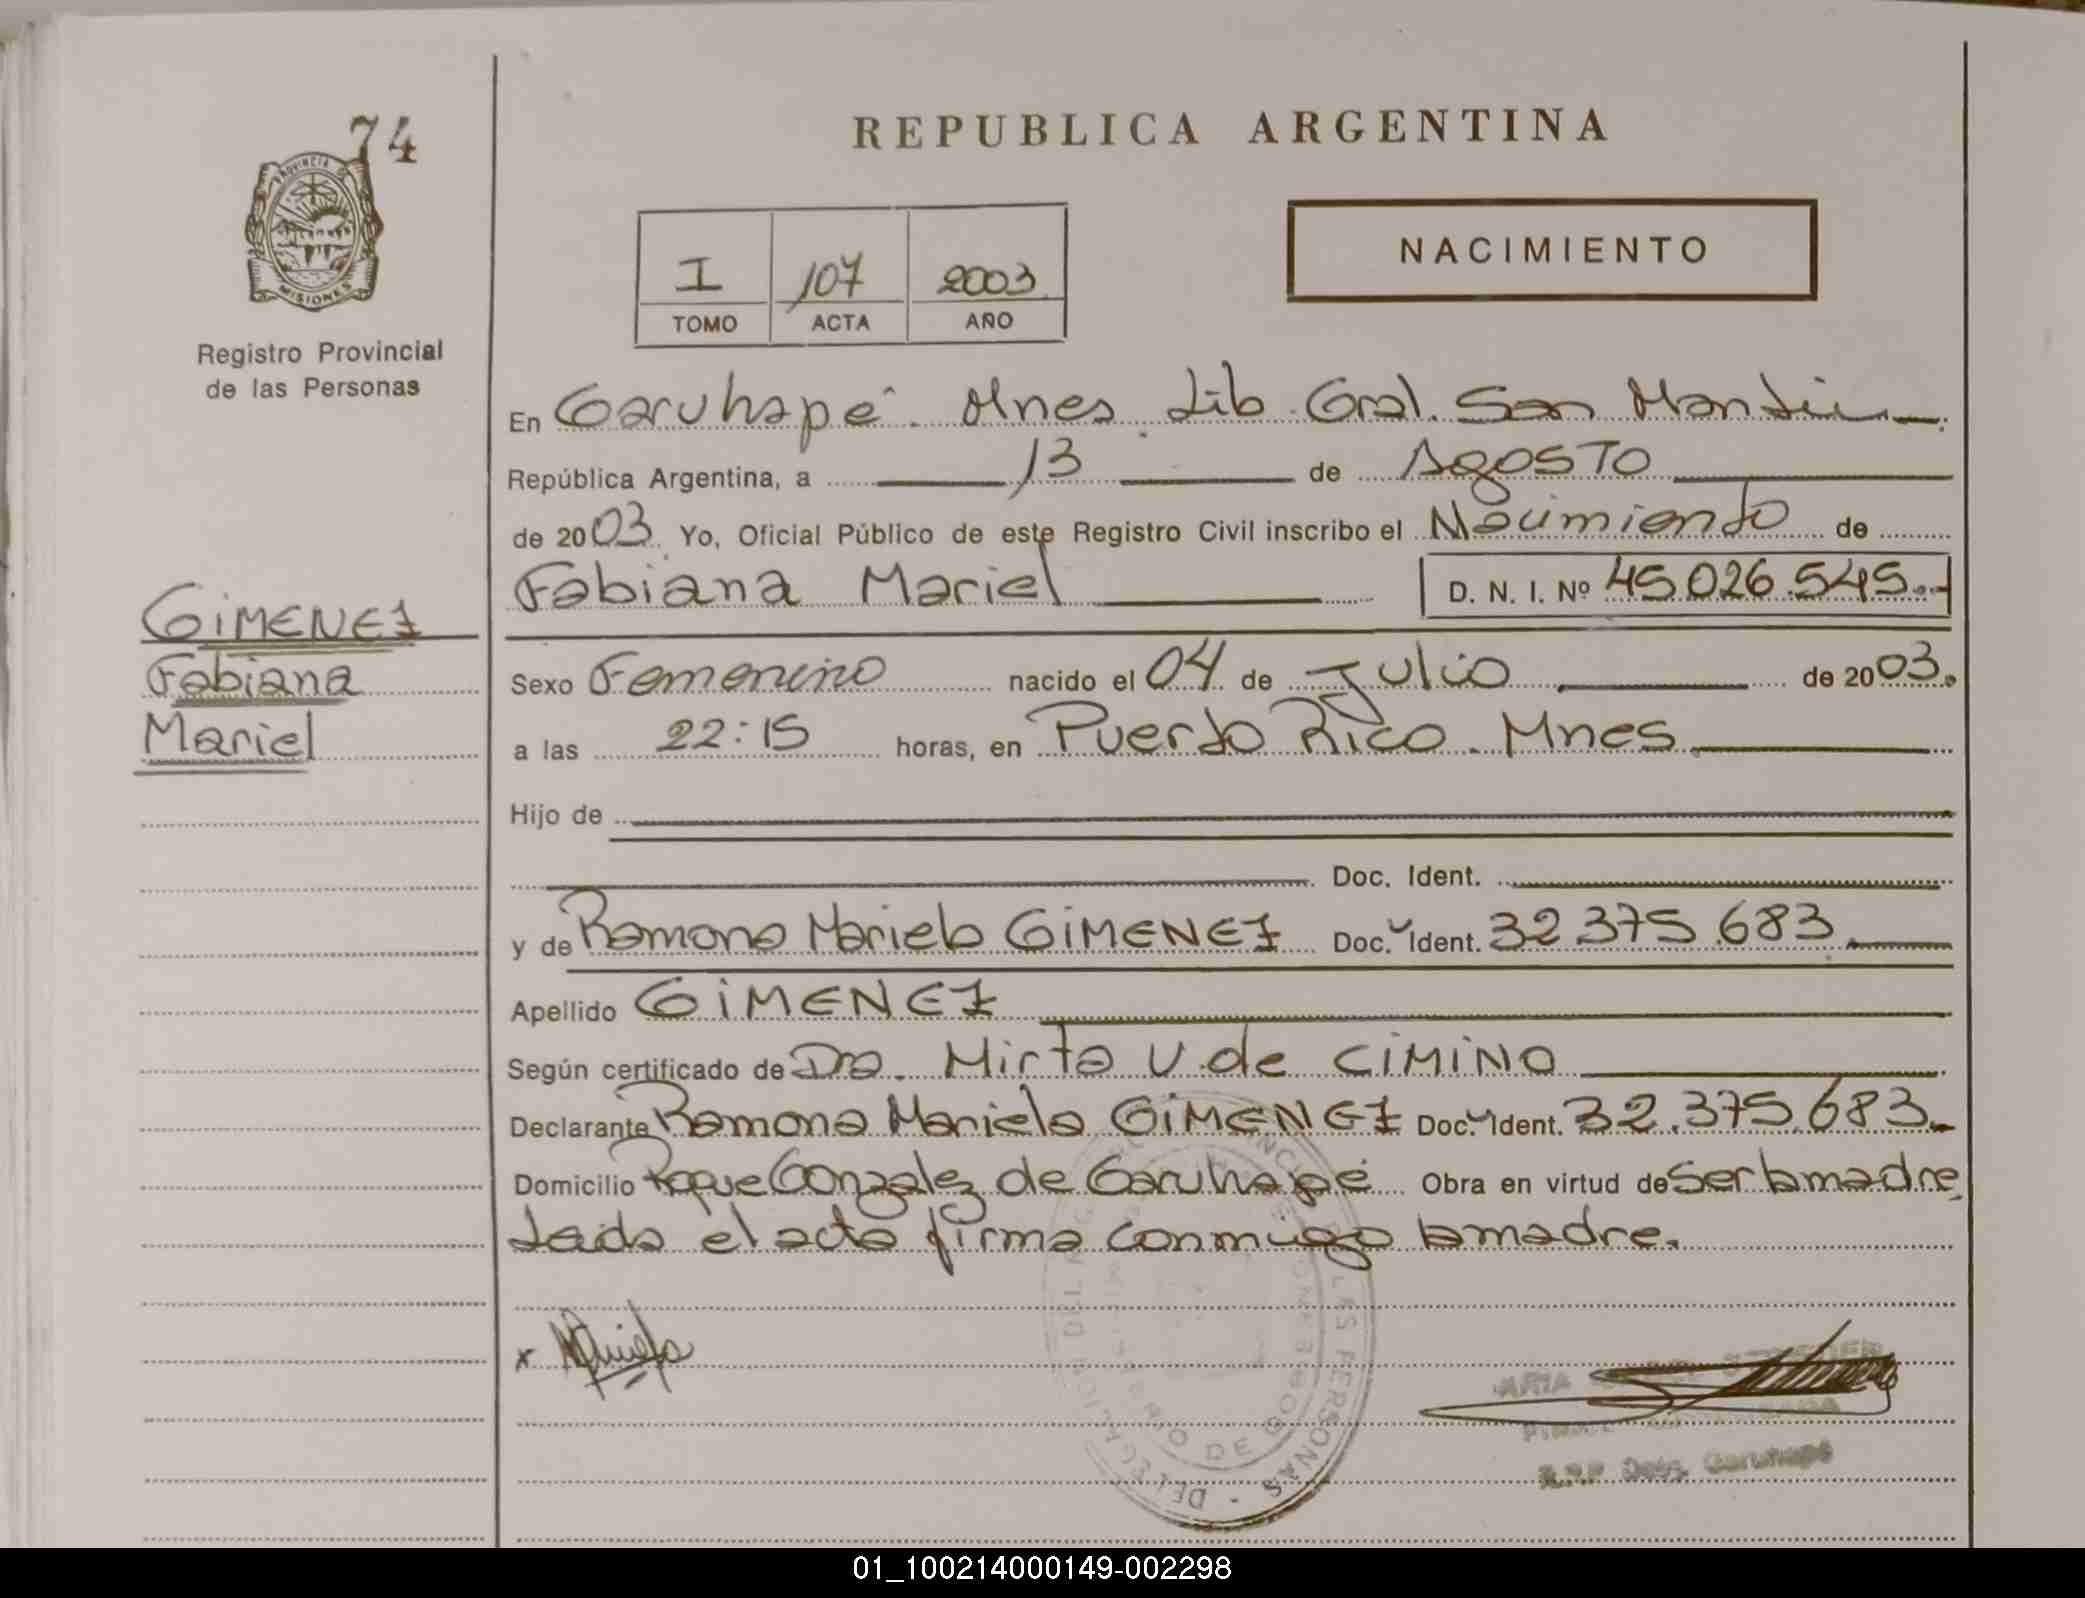 74
PROVINCIA DE
MISIONES
Registro Provincial
de las Personas
GIMENEZ
Fabiana
Mariel
REPUBLICA ARGENTINA
I 107 2003
TOMO ACTA AÑO
NACIMIENTO
En Garuhapé. Mnes. Lib. Gral. San Martin
República Argentina, a 13 de Agosto
de 2003. Yo, Oficial Público de este Registro Civil inscribo el Nacimiento de
Fabiana Mariel D. N. I. Nº 45.026.545.-
Sexo Femenino nacido el 04 de Julio de 2003.
a las 22:15 horas, en Puerto Rico. Mnes.
Hijo de
Doc. Ident.
y de Ramona Mariela GIMENEZ Doc. Ident. 32.375.683.
Apellido GIMENEZ
Según certificado de Dra. Mirta V. de CIMINO
Declarante Ramona Mariela GIMENEZ Doc. Ident. 32.375.683.-
Domicilio Roque Gonzalez de Garuhapé Obra en virtud de Ser la madre
Leida el acta firma conmigo la madre.
x Mariela
DE LAS PERSONAS - DELEGACION DEL
DE GOB
R.P.P Deleg. Garuhapé
01_100214000149-002298